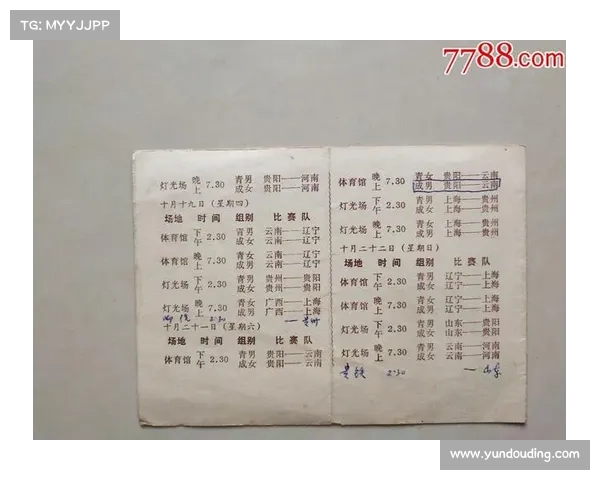 TG: MYYJJPP
7788.com
灯光场 晚上 7.30 青男 贵阳——河南
成女 贵阳——河南
十月十九日(星期四)
场地 时间 组别 比赛队
体育馆 下午 2.30 青男 云南——辽宁
成女 云南——辽宁
体育馆 晚上 7.30 青女 云南——辽宁
成男 云南——辽宁
灯光场 下午 2.30 青男 贵州——贵阳
成女 贵州——贵阳
灯光场 晚上 7.30 青女 广西——上海
成男 广西——上海
2:30 — 贵州
十月二十一日(星期六)
场地 时间 组别 比赛队
体育馆 下午 2.30 青男 贵阳——云南
成女 贵阳——云南
体育馆 晚上 7.30 青女 贵阳——云南
成男 贵阳——云南
灯光场 下午 2.30 青男 上海——贵州
成女 上海——贵州
灯光场 晚上 7.30 青女 上海——贵州
成男 上海——贵州
十月二十二日(星期日)
场地 时间 组别 比赛队
体育馆 下午 2.30 青男 辽宁——上海
成女 辽宁——上海
体育馆 晚上 7.30 青女 辽宁——上海
成男 辽宁——上海
灯光场 下午 2.30 青男 山东——贵阳
成女 山东——贵阳
灯光场 晚上 7.30 青男 云南——河南
成女 云南——河南
2:30 — 山东
www.yundouding.com